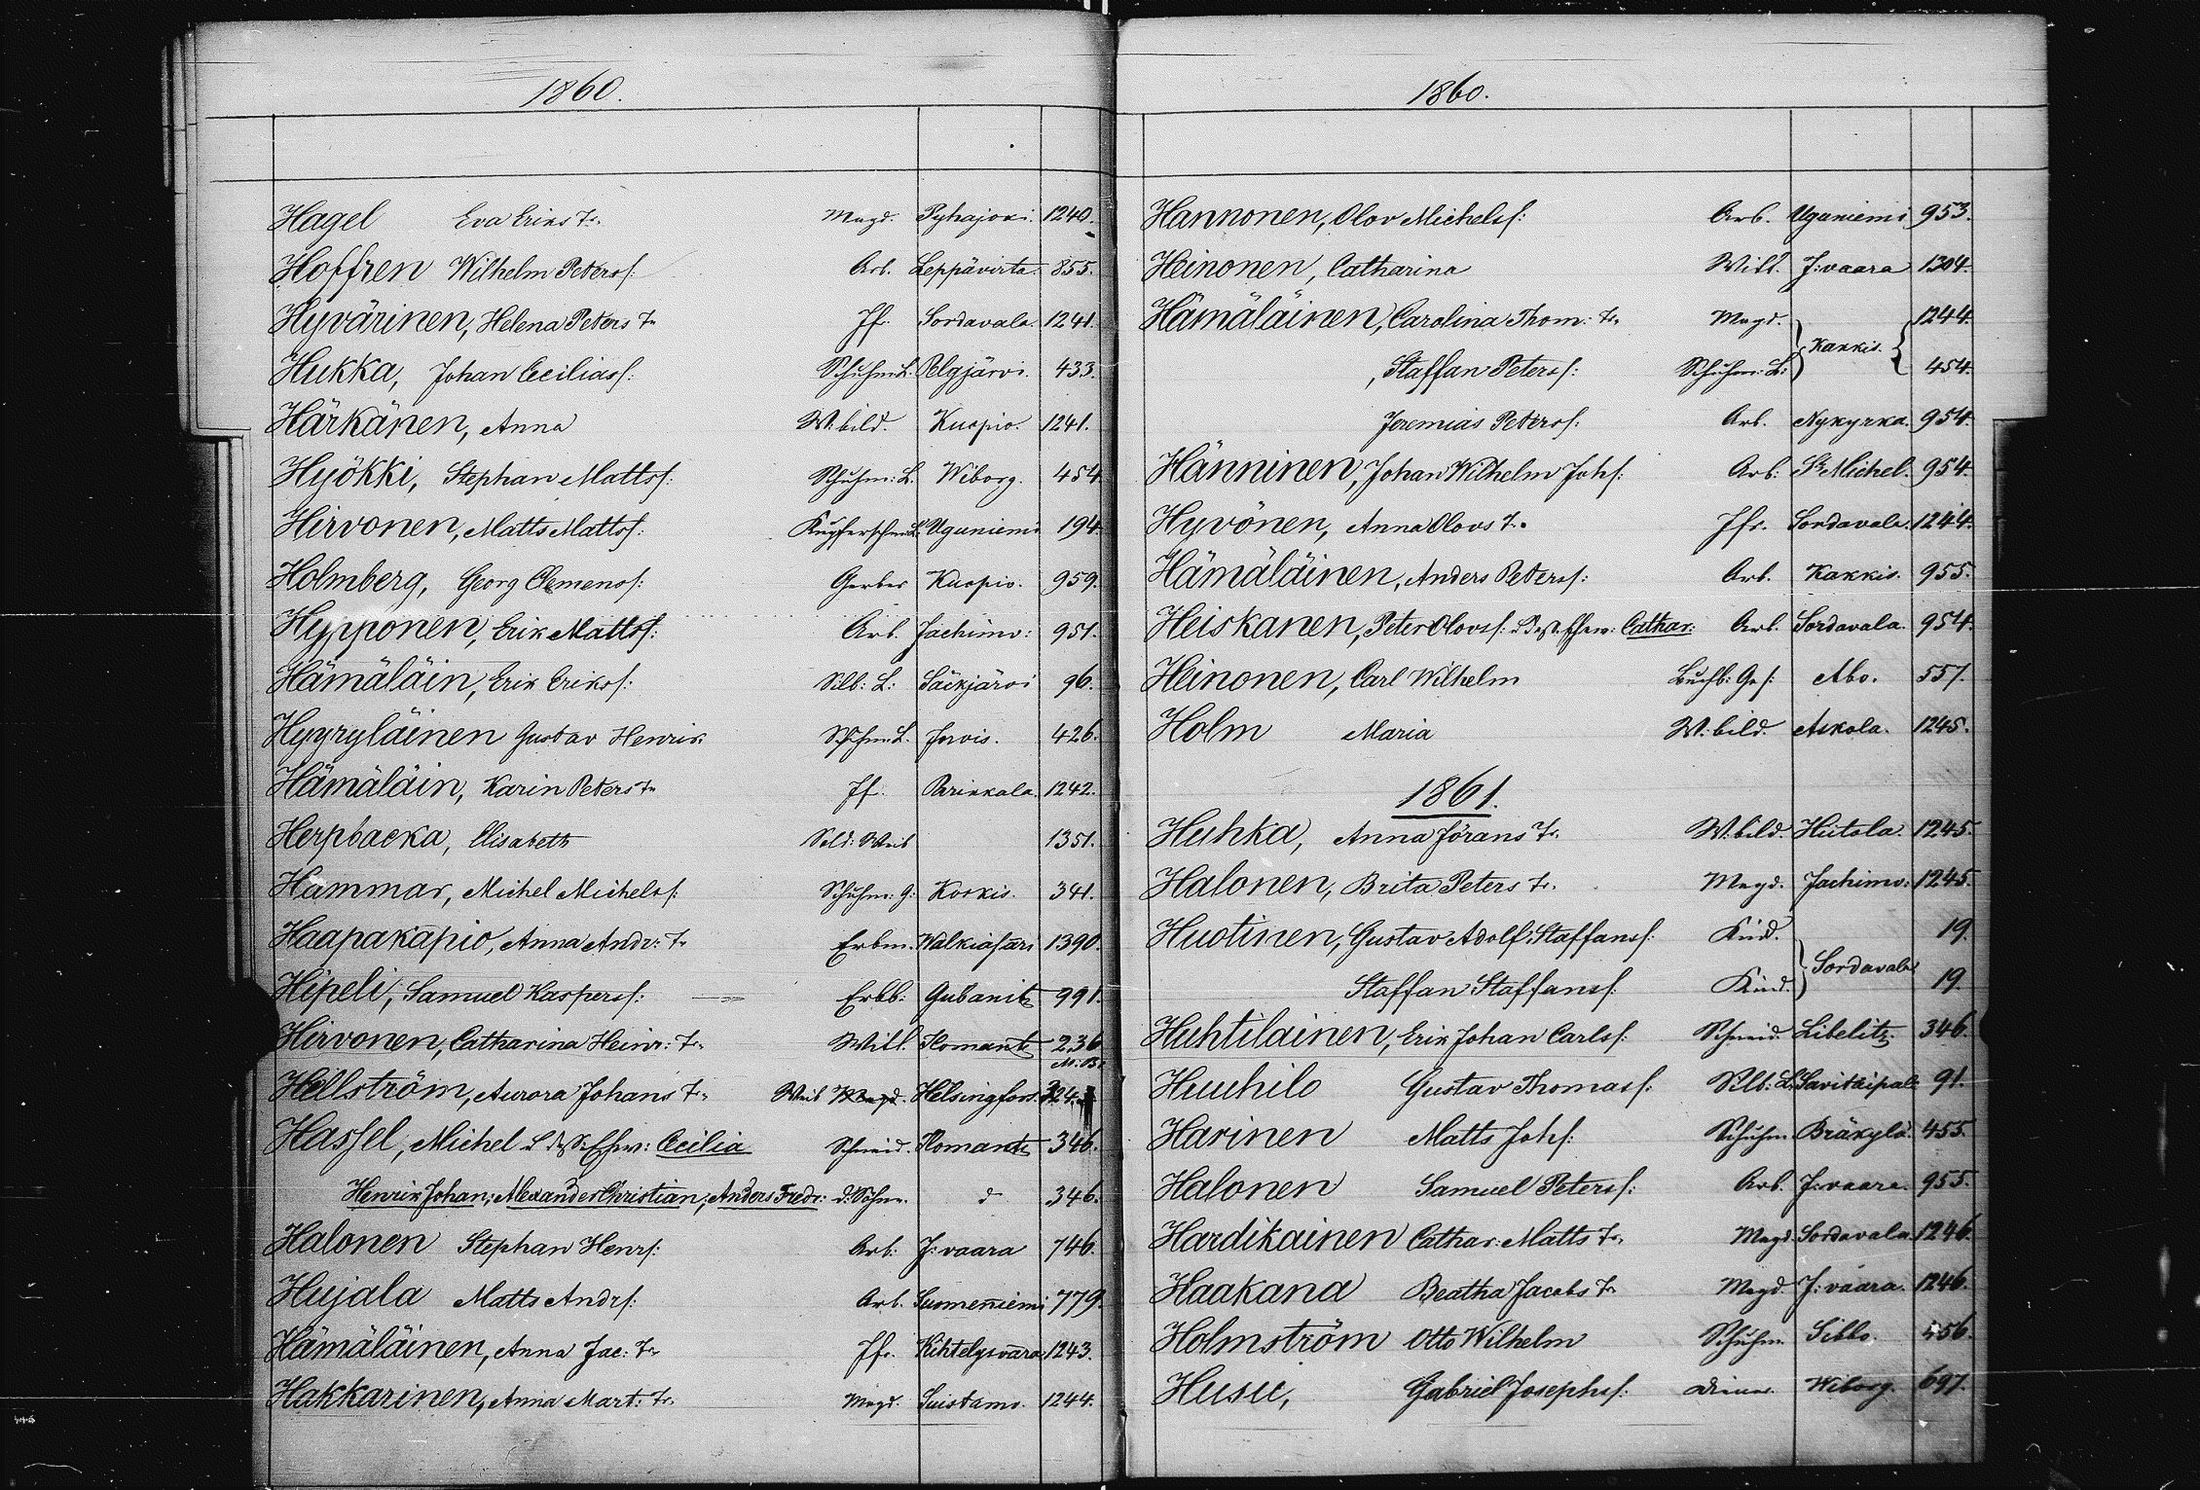 1860.
Hagel Eva Eriks Tr. Magd. Pyhajoki. 1240.
Hoffren Wilhelm Peterss: Arb. Leppävirta. 855.
Hyvärinen, Helena Peters Tr Jfr. Sordavala. 1241.
Hukka, Johan Ceciliass: Schuhm: L. Pelgjärvi. 433.
Härkänen, Anna W. bild. Kuopio. 1241.
Hyökki, Stephan Mattss: Schuhm: L. Wiborg. 454.
Hirvonen, Matts Mattss: Kupferschm: L. Uguniemi 194.
Holmberg, Georg Clemenss: Gerber Kuopio. 959.
Hypponen, Erik Mattss: Arb. Jachimv: 951.
Hämäläin, Erik Erikss: Silb: L: Säkjärvi 96.
Hyyryläinen Gustav Henrik Schuhm: L. Jorvis. 426.
Hämäläin, Karin Peters Tr Jf. Parikkala. 1242.
Herpbacka, Elisabeth Sold: Weib 1351.
Hammar, Michel Michelss: Schuhm: G: Korkis. 341.
Haapakapio, Anna Andr: Tr Erbm. Walkiasari 1390.
Hipeli, Samuel Kasperss: Erbb: Gubanitz 991.
Hirvonen, Catharina Heinr: Tr. Witt. Ilomants 236
Hellström, Aurora Johans Tr. Weib Magd. Helsingfors.
Hassel, Michel L. d. S: Ehew: Cecilia Schneid. Ilomants 346.
Henrik Johan; Alexander Christian; Anders Fredr: d: Söhne. d 346.
Halonen Stephan Henrs: Arb: J: vaara 746.
Hujala Matts Andrs: Arb. Suomenniemi 779.
Hämäläinen, Anna Jac: Tr Jfr. Kihtelysvaara 1243.
Hakkarinen, Anna Mart: Tr. Magd. Suistamo. 1244.
1860.
Hannonen, Olov Michelss: Arb. Uguniemi 953.
Heinonen, Catharina Witt. J: vaara 1304.
Hämäläinen, Carolina Thom: Tr. Magd. Kakkis. 1244.
, Staffan Peterss: Schuhm: L: 454.
Jeremias Peterss: Arb. Nykyrka. 954.
Hänninen, Johan Wilhelm Johs: Arb: St Michel. 954.
Hyvönen, Anna Olovs Tr. Jfr. Sordavala. 1244.
Hämäläinen, Anders Peterss: Arb. Kakkis. 955.
Heiskanen, Peter Olovss: Ehew: Cathar: Arb. Sordavala. 954.
Heinonen, Carl Wilhelm Buchb: Ges: Abo. 557.
Holm Maria W. bild. Askola. 1245.
1861.
Huhka, Anna Jörans Tr. W. bild. Hiitola. 1245.
Halonen, Brita Peters Tr. Magd. Jachimv: 1245.
Huotinen, Gustav Adolf Staffanss: Kind. Sordavala 19.
Staffan Staffanss: Kind. 19.
Huhtilainen, Erik Johan Carlss: Schneid. Libelitz. 346.
Huuhilo Gustav Thomass: Silb: L. Savitaipal: 91.
Harinen Matts Johs: Schuhm. Bräkylä. 455.
Halonen Samuel Peterss: Arb. J: vaara. 955.
Hardikainen Cathar: Matts Tr. Magd. Sordavala. 1246.
Haakana Beatha Jacobs Tr Magd. J: vaara. 1246.
Holmström Otto Wilhelm Schuhm. Sibbo. 456.
Husu, Gabriel Josephss: Diener. Wiborg. 697.